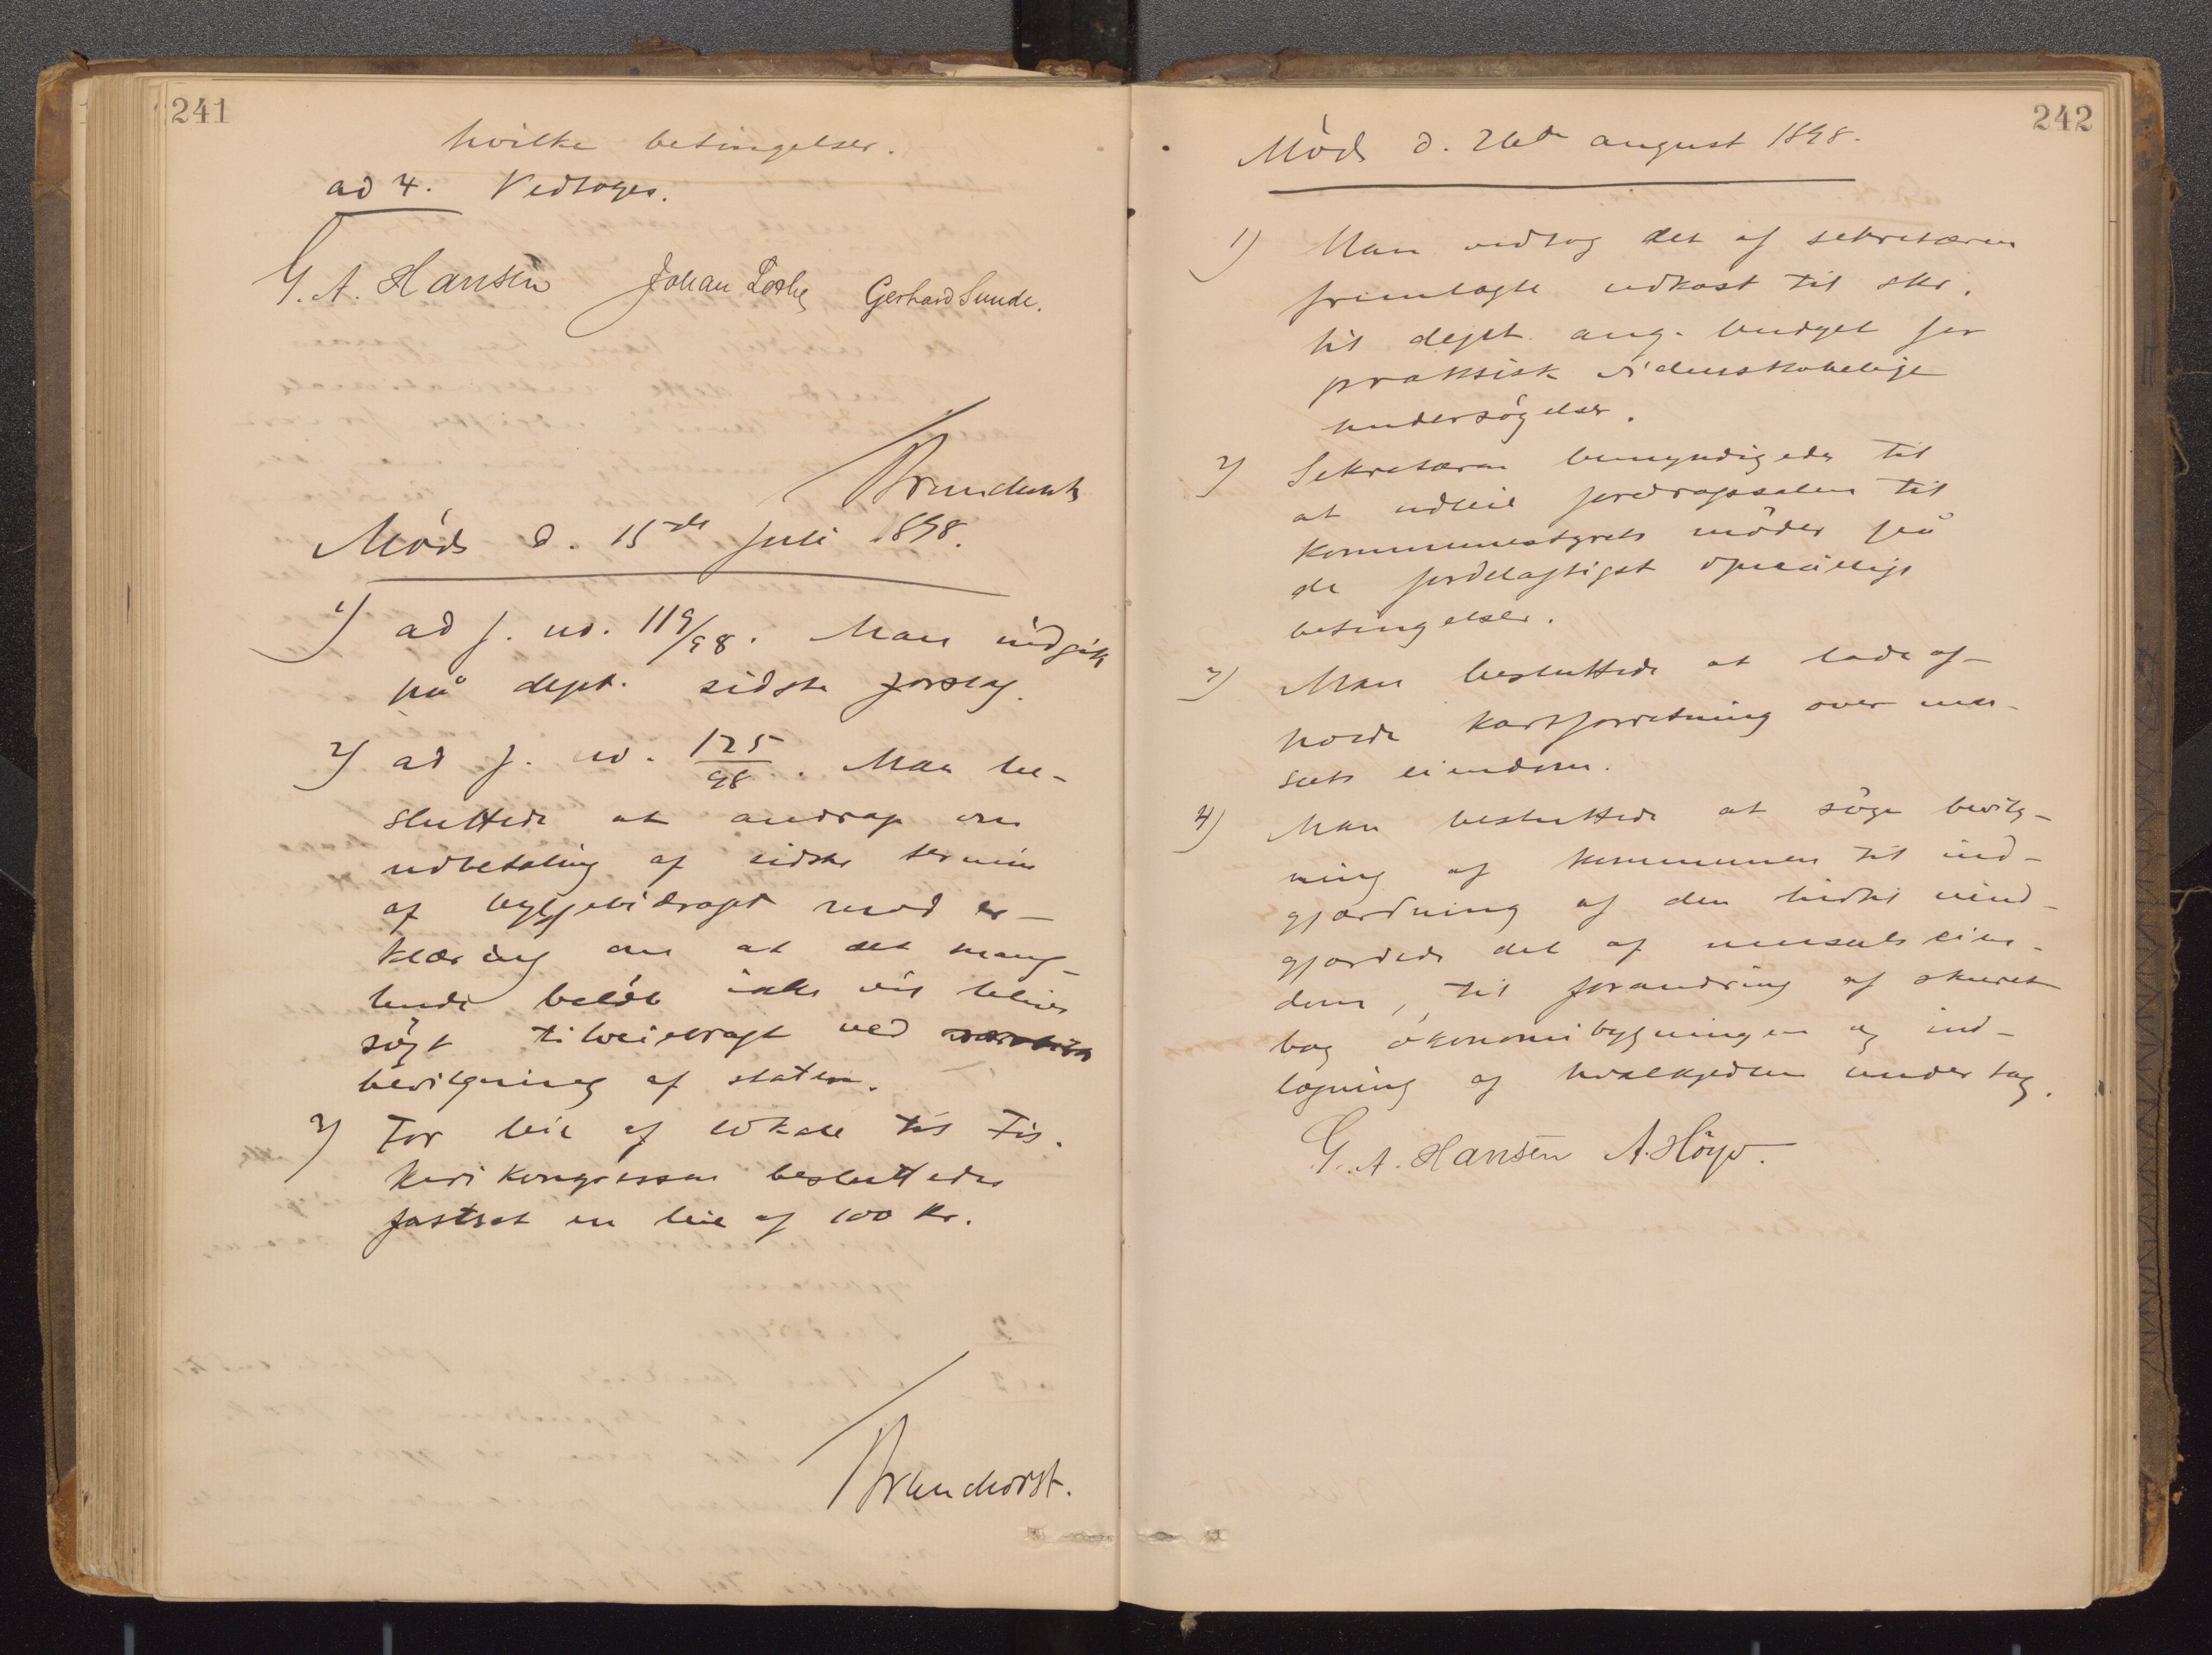 241
hvilke betingelser.
ad 4. Vedtoges.
G. A. Hansen Johan Gerhard Sunde.
Brunchorst
Møde d. 15de juli 1898.
1) ad j. no. 119/98. Man indgik
på dept. sidste forslag.
2) ad j. no. 125/98. Man be-
sluttede at andrage om
udbetaling af sidste termin
af byggebidraget mod er-
klæring om at det mang-
lende beløb ikke vil blive
søgt tilveiebragt ved
bevilgning af staten.
3) For leie af lokale til Fis-
kerikongressen besluttedes
fastsat en leie af 100 kr.
Brunchorst.
242
Møde d. 26de august 1898.
1) Man vedtog det af sekretæren
fremlagte udkast til skr.
til dept. ang. budget for
praktisk videnskabelige
undersøgelser.
2) Sekretæren bemyndigedes til
at udleie foredragssalen til
kommunestyrets møder på
de fordelagtigst opnåelige
betingelser.
3) Man besluttede at lade af-
holde kartforretning over mu-
seets eiendom.
4) Man besluttede at søge bevilg-
ning af kommunen til ind-
gjærdning af den hidtil uind-
gjærdede del af museets eien-
dom, til forandring af skuret
bag økonomibygningen og ind-
lægning af hvalkjedlen under tag.
G. A. Hansen A.